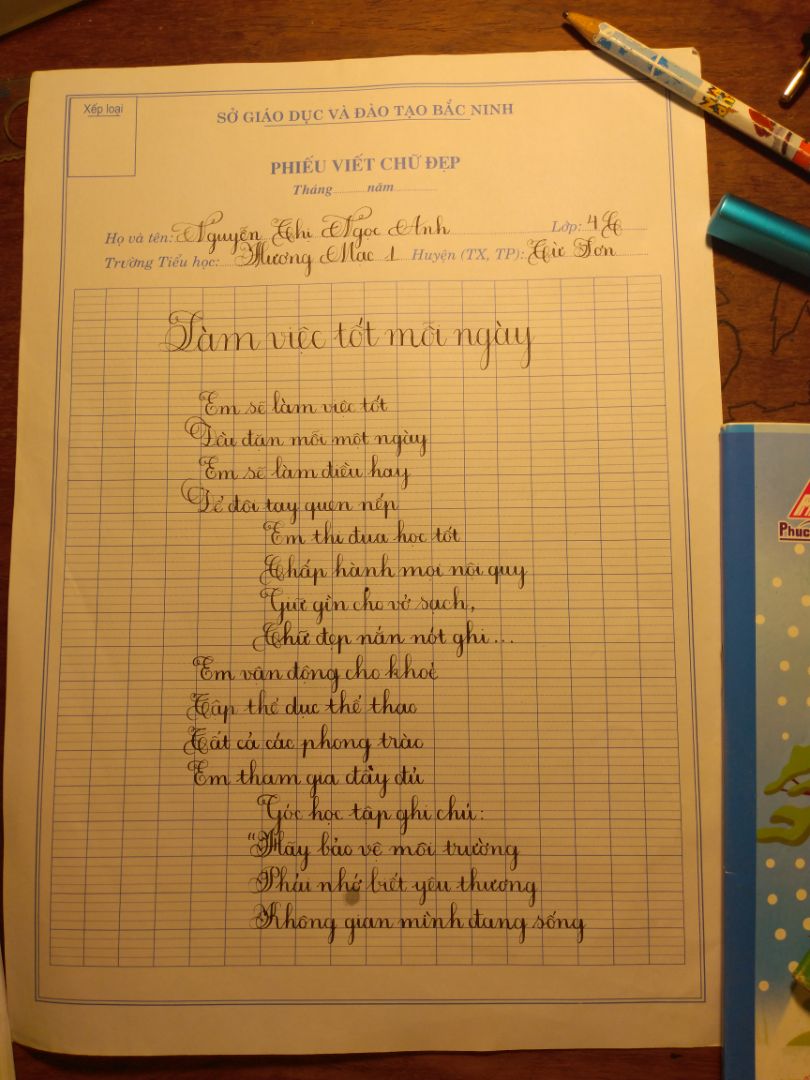 Xếp loại
SỞ GIÁO DỤC VÀ ĐÀO TẠO BẮC NINH
PHIẾU VIẾT CHỮ ĐẸP
Tháng.........năm............
Họ và tên: Nguyễn Thị Ngọc Anh Lớp: 4C
Trường Tiểu học: Hương Mạc 1 Huyện (TX, TP): Từ Sơn
Làm việc tốt mỗi ngày
Em sẽ làm việc tốt
Đều đặn mỗi một ngày
Em sẽ làm điều hay
Để đôi tay quen nếp
Em thi đua học tốt
Chấp hành mọi nội quy
Giữ gìn cho vở sạch,
Chữ đẹp nắn nót ghi...
Em vận động cho khoẻ
Tập thể dục thể thao
Tất cả các phong trào
Em tham gia đầy đủ
Góc học tập ghi chú:
"Hãy bảo vệ môi trường
Phải nhớ biết yêu thương
Không gian mình đang sống
Phúc